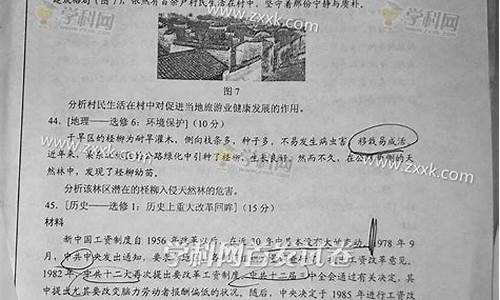 是成格局(图7),依然有百余户村民生活在村中,坚守着那份宁静与质朴。
图7
分析村民生活在村中对促进当地旅游业健康发展的作用。
44. [地理——选修6:环境保护](10分)
干旱区的柽柳为耐旱灌木,侧向枝条多,种子多,不易发生病虫害,移栽易成活。
近年来,某林区公路绿化中引种了柽柳,生长良好。然而不久,在公路两侧的天
然林中,发现了柽柳幼苗。
分析该林区潜在的柽柳入侵天然林的危害。
45. [历史——选修1:历史上重大改革回眸](15分)
材料
新中国工资制度自1956年改革以后,在近30年中基本没有大的变动。1978年9
月,中共中央发出通知,要
工资改革意见。
1982年,中共十二大再次提出要改革工资制度。中共十二届三中全会通过有关决定,其
中提出尤其要改变脑力劳动者报酬偏低的状况。随后,中央决定于1985年进行工资改
学科网
www.zxxk.com
学科网
www.zxxk.com
www.zxxk.com
学科网
www.zxxk.com
学科网首发见卷